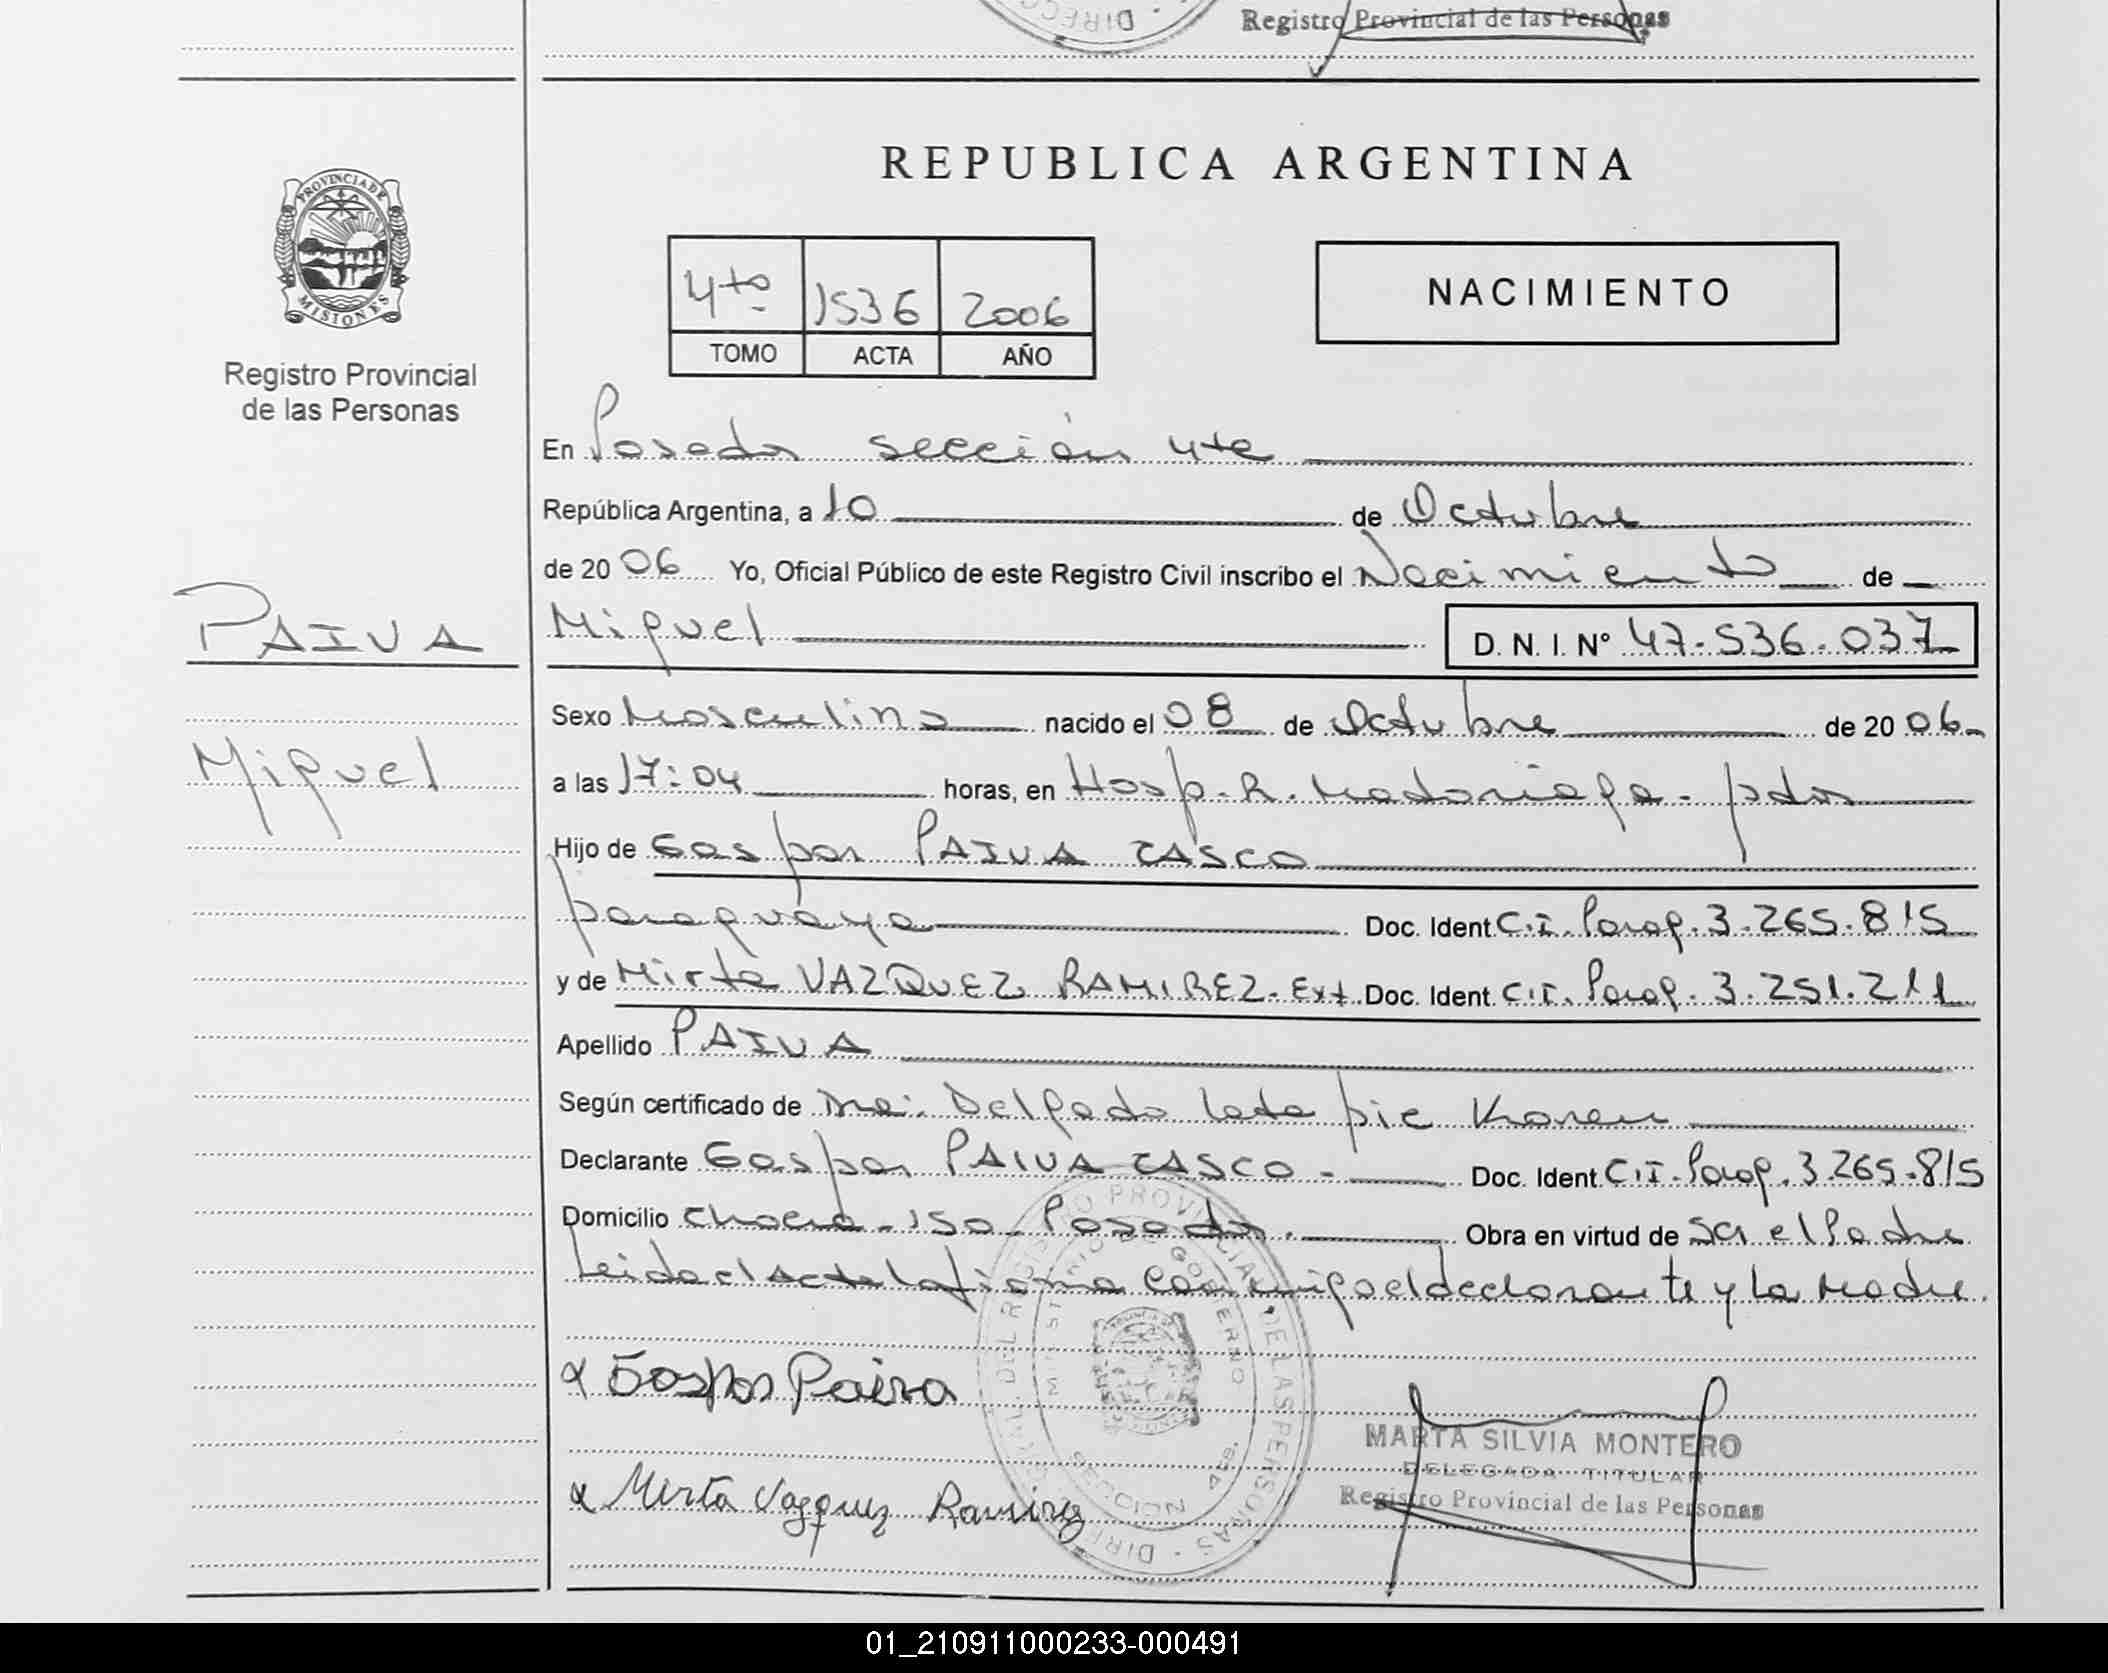 DIRECC
Registro Provincial de las Personas
PROVINCIA DE
MISIONES
Registro Provincial
de las Personas
REPUBLICA ARGENTINA
4to 1536 2006
TOMO ACTA AÑO
NACIMIENTO
En Posadas sección 4ta
República Argentina, a 10 de Octubre
de 2006 Yo, Oficial Público de este Registro Civil inscribo el Nacimiento de
PAIVA
Miguel D. N. I. Nº 47.536.037
Sexo Masculino nacido el 08 de Octubre de 2006
Miguel
a las 17:04 horas, en Hosp. R. Madariaga - pdas
Hijo de Gaspar PAIVA CASCO
paraguaya Doc. Ident C.I. Parag. 3.265.815
y de Mirta VAZQUEZ RAMIREZ. Ext. Doc. Ident C.I. Parag. 3.251.211
Apellido PAIVA
Según certificado de Dra. Delgado Karen
Declarante Gaspar PAIVA CASCO - Doc. Ident C.I. Parag. 3.265.815
Domicilio Chacra - 150 Posadas. Obra en virtud de ser el Padre
Leida el Acta la firma conmigo el declarante y la Madre.
Gaspar Paiva
Mirta Vazquez Ramirez
DIRECC GRAL. DEL REGISTRO PROVINCIAL DE LAS PERSONAS
MINISTERIO DE GOBIERNO
SECCION 4ta.
MARTA SILVIA MONTERO
DELEGADA TITULAR
Registro Provincial de las Personas
01_210911000233-000491